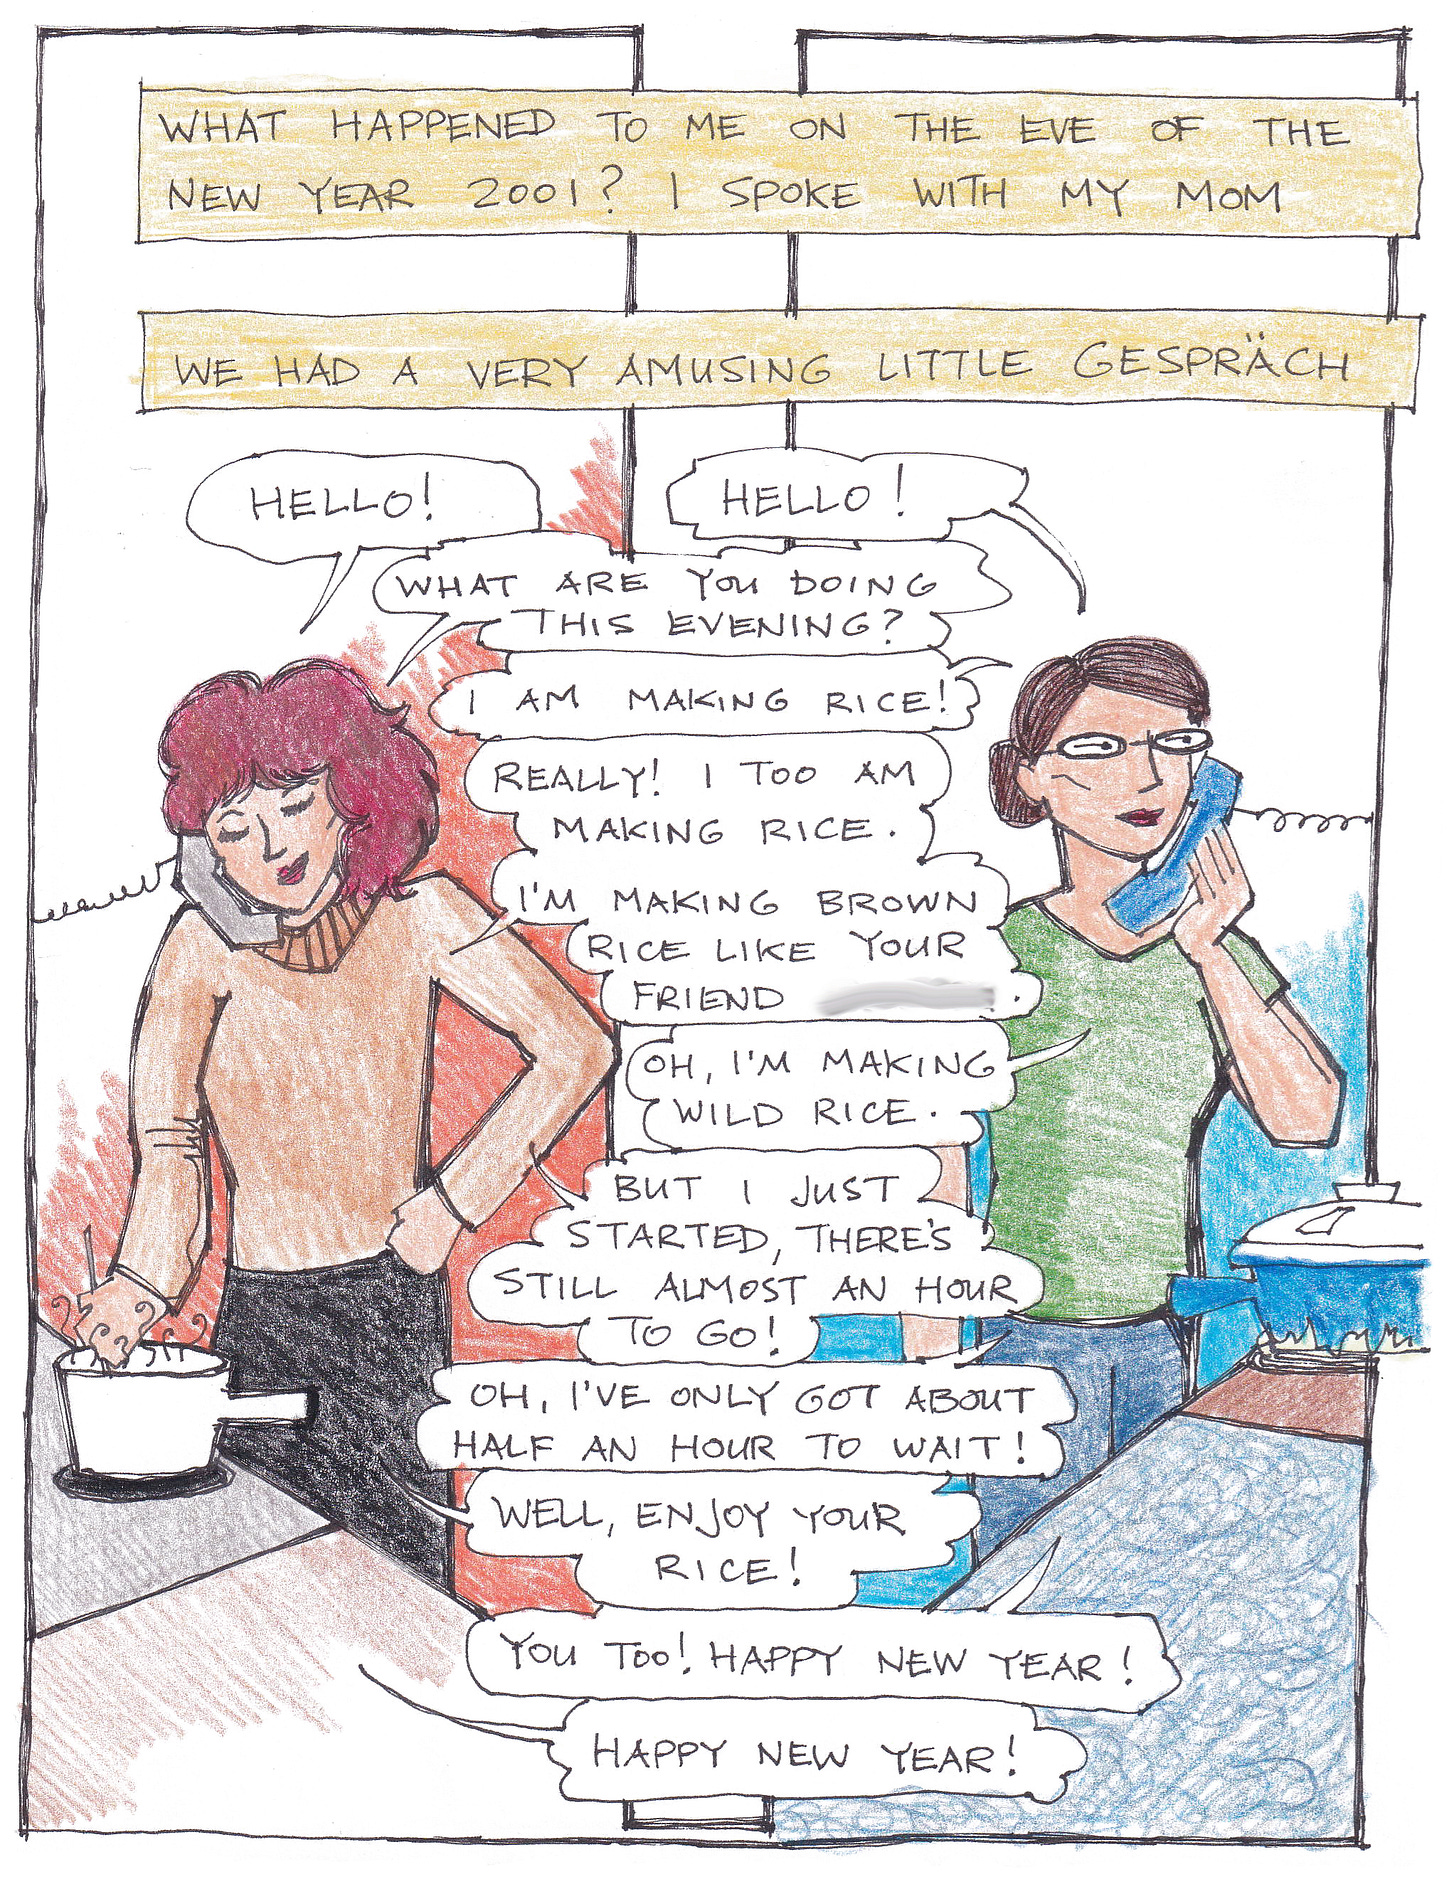 WHAT HAPPENED TO ME ON THE EVE OF THE
NEW YEAR 2001? I SPOKE WITH MY MOM
WE HAD A VERY AMUSING LITTLE GESPRÄCH
HELLO!
HELLO!
WHAT ARE YOU DOING
THIS EVENING?
I AM MAKING RICE!
REALLY! I TOO AM
MAKING RICE.
I'M MAKING BROWN
RICE LIKE YOUR
FRIEND .
OH, I'M MAKING
WILD RICE.
BUT I JUST
STARTED, THERE'S
STILL ALMOST AN HOUR
TO GO!
OH, I'VE ONLY GOT ABOUT
HALF AN HOUR TO WAIT!
WELL, ENJOY YOUR
RICE!
YOU TOO! HAPPY NEW YEAR!
HAPPY NEW YEAR!